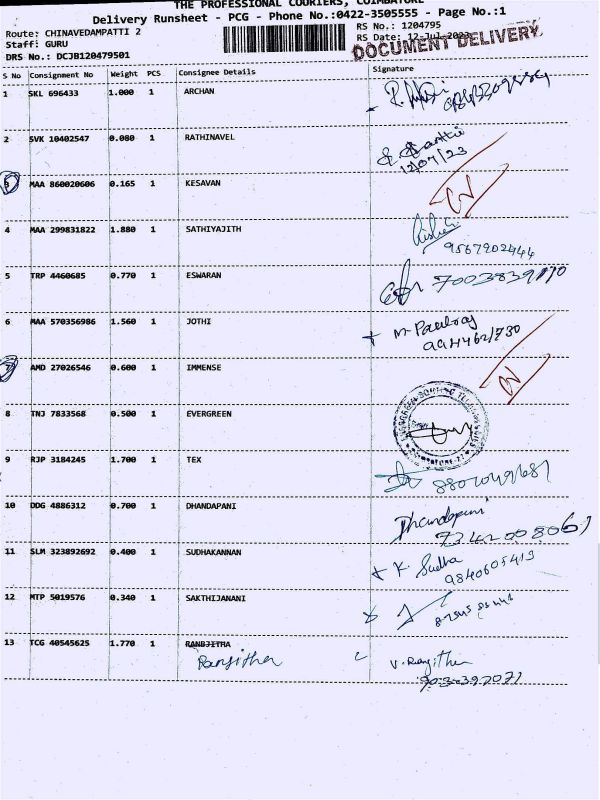 THE PROFESSIONAL COURIERS, COIMBATORE
Delivery Runsheet - PCG - Phone No.:0422-3505555 - Page No.:1
Route: CHINAVEDAMPATTI 2
Staff: GURU
DRS No.: DCJB120479501
RS No.: 1204795
RS Date: 12-Jul-2023
DOCUMENT DELIVERY
S No Consignment No Weight PCS Consignee Details Signature
1 SKL 696433 1.000 1 ARCHAN
2 SVK 10402547 0.080 1 RATHINAVEL
12/07/23
3 MAA 860020606 0.165 1 KESAVAN
4 MAA 299831822 1.880 1 SATHIYAJITH
9567202444
5 TRP 4460685 0.770 1 ESWARAN
6 MAA 570356986 1.560 1 JOTHI
M. Paulraj
7 AMD 27026546 0.600 1 IMMENSE
8 TNJ 7833568 0.500 1 EVERGREEN
9 RJP 3184245 1.700 1 TEX
10 DDG 4886312 0.700 1 DHANDAPANI Dhandapani
11 SLM 323892692 0.400 1 SUDHAKANNAN K. Sudha
9840605413
12 MTP 5019576 0.340 1 SAKTHIJANANI
13 TCG 40545625 1.770 1 RANBJITRA
Ranjitha V. Ranjitha